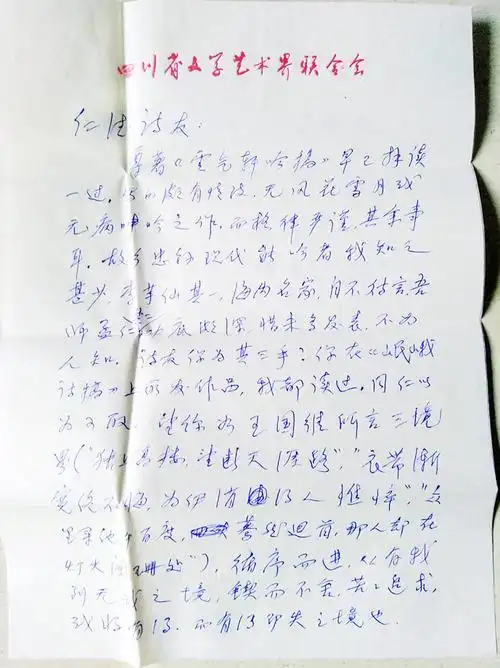 四川省文学艺术界联合会
仁德诗友：
尊著《云气轩吟稿》早已拜读
一过，颇有情致，无风花雪月或
无病呻吟之作，而格律严谨，其余事
耳。故乡忠县现代能吟者我知之
甚少，李芋仙其一，海内名家，自不待言。吾
师孟仁功底颇深，惜未多发表，不为
人知。诗友你为其三乎？你在《岷峨
诗稿》上所发作品，我都读过，同仁以
为可取。望你如王国维所言三境
界（“独上高楼，望断天涯路”，“衣带渐
宽终不悔，为伊消得人憔悴”，“众
里寻他千百度，蓦然回首，那人却在
灯火阑珊处”），循序而进，从有我
到无我之境，锲而不舍，苦苦追求，
或将有得，而有得即失之境也。